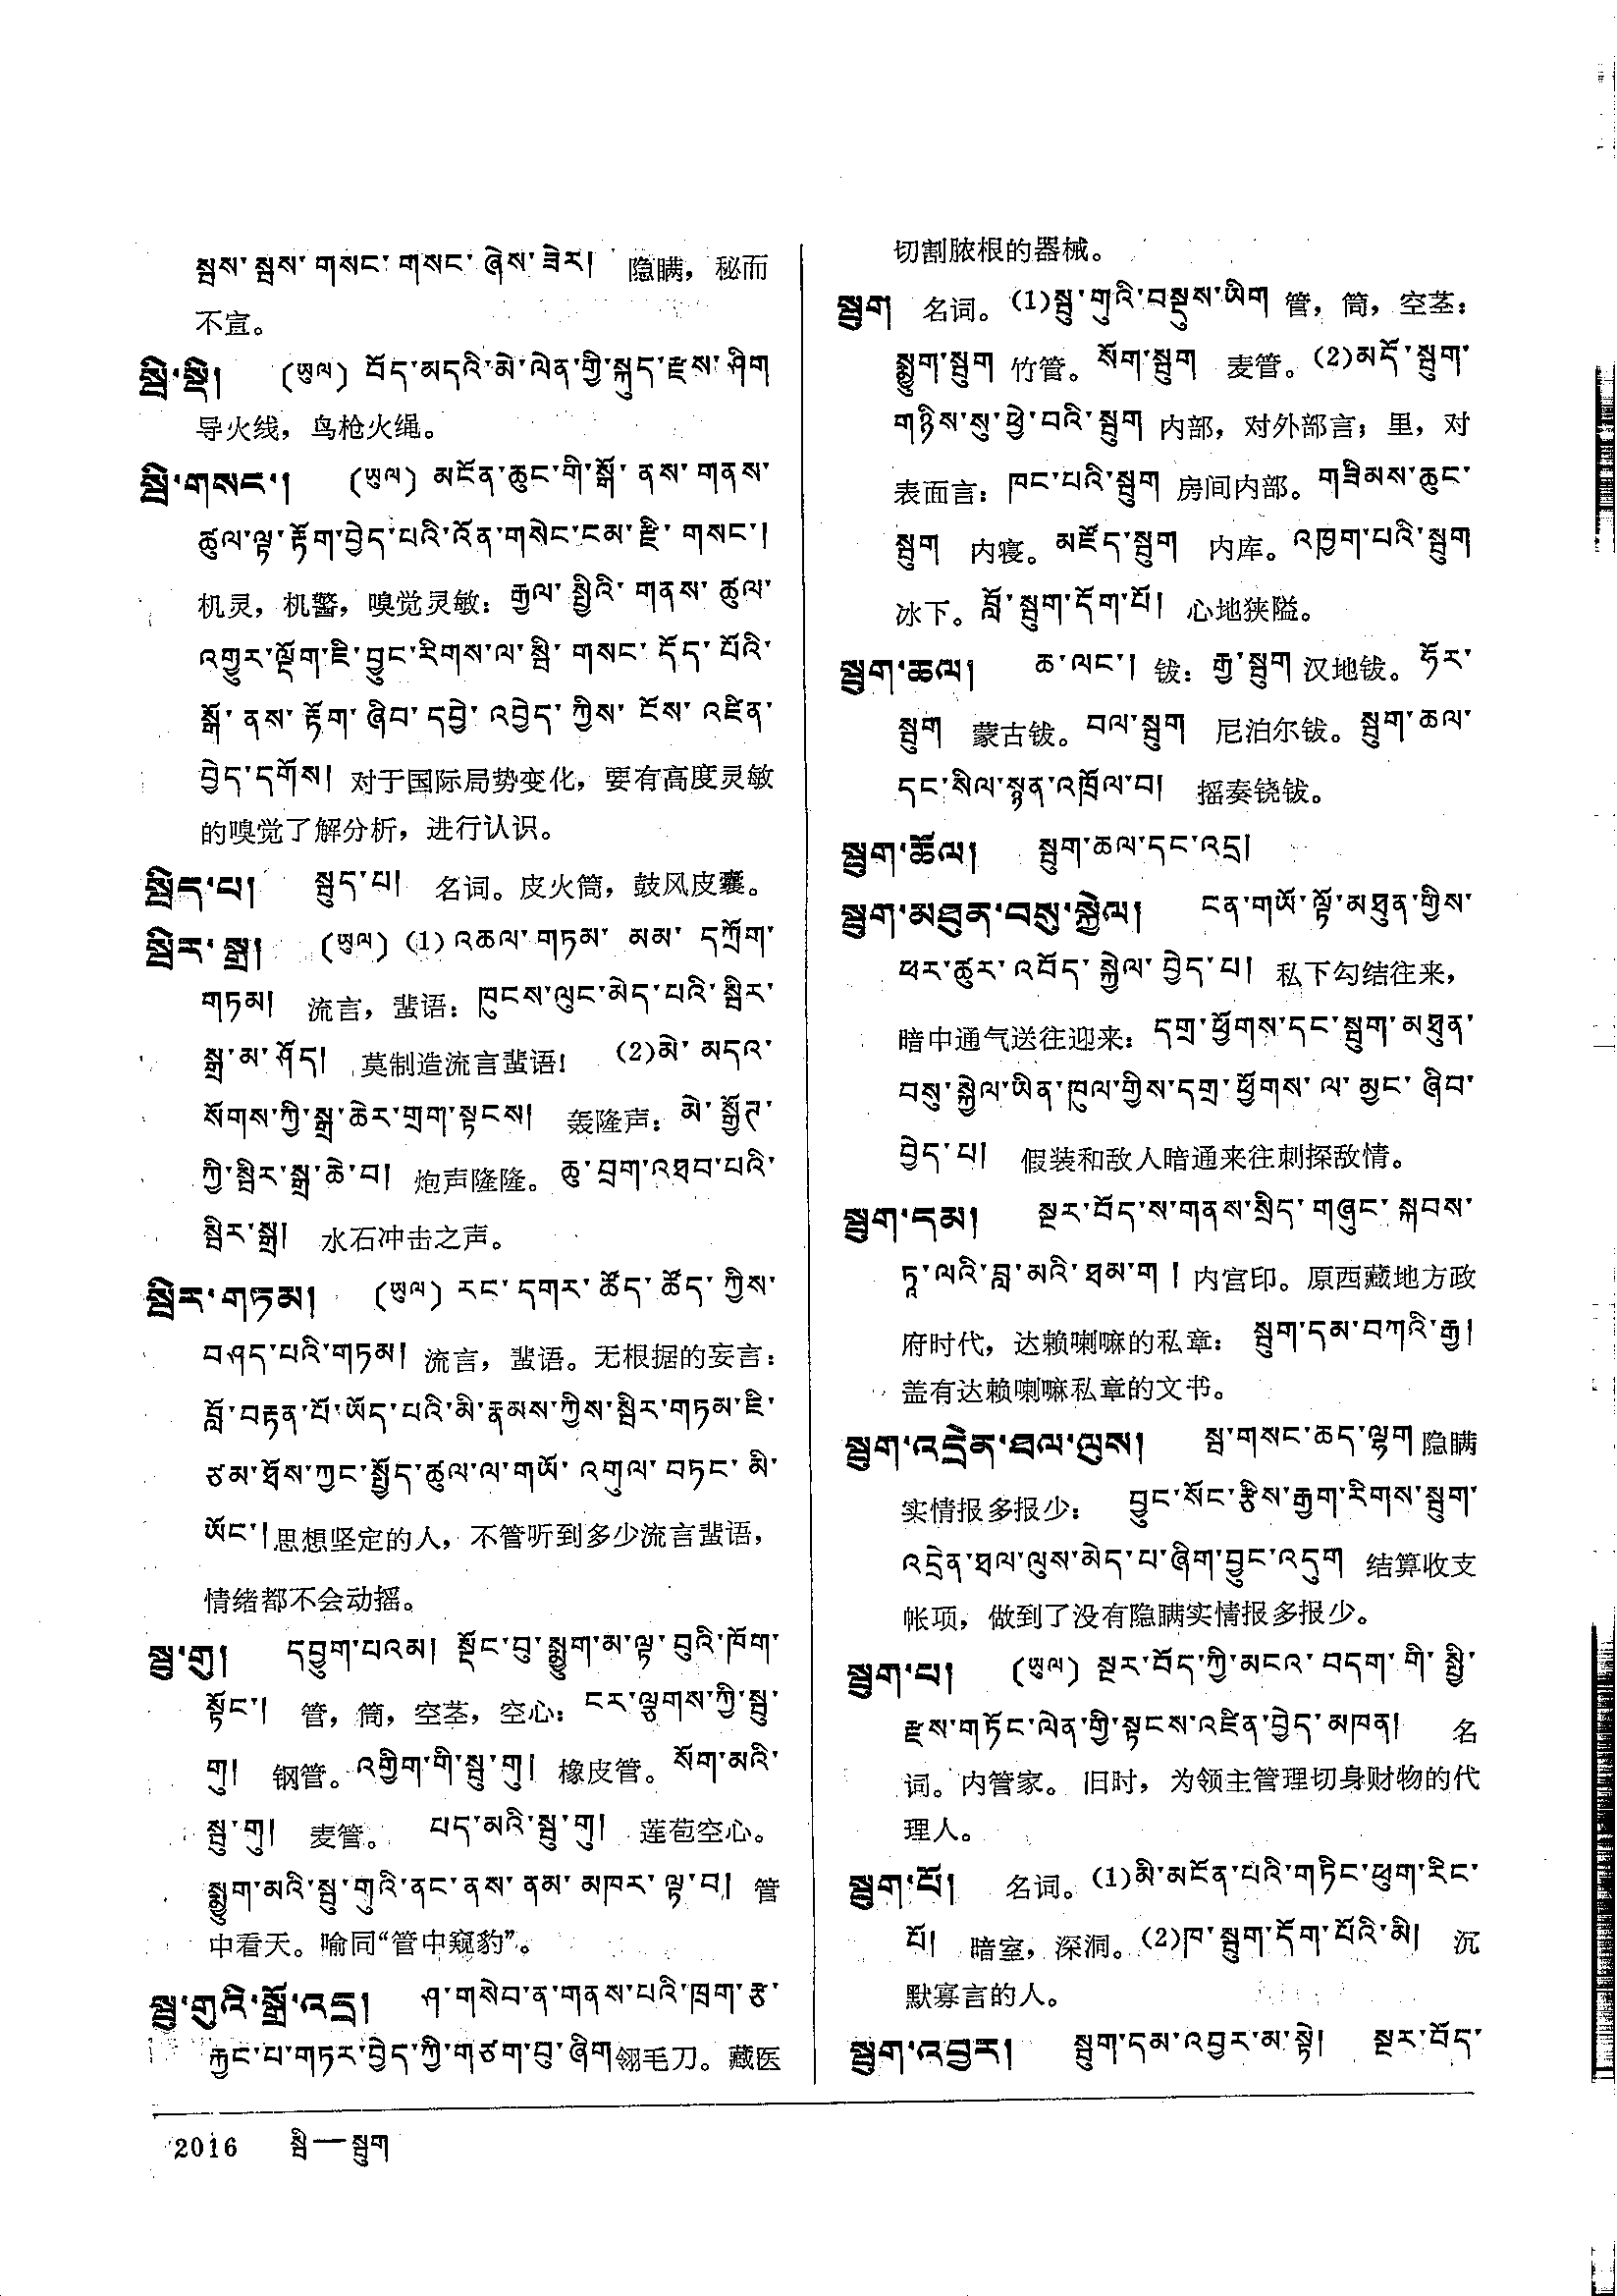 སྦས་སྦས་གསང་གསང་ཞེས་ཟེར། 隐瞒，秘而
不宣。
སྦི་སྡི། (ཡུལ) བོད་མདའི་མེ་ལེན་གྱི་སྐུད་རྫས་ཤིག
导火线，鸟枪火绳。
སྦི་གསང་། (ཡུལ) མངོན་ཆུང་གི་སྒོ་ནས་གནས་
ཚུལ་ལྟ་རྟོག་བྱེད་པའི་འོན་གསེང་ངམ་རྫི་གསང་།
机灵，机警，嗅觉灵敏：རྒྱལ་སྤྱིའི་གནས་ཚུལ་
འགྱུར་ལྡོག་ཇི་བྱུང་རིགས་ལ་སྦི་གསང་དོད་པོའི་
སྒོ་ནས་རྟོག་ཞིབ་དབྱེ་འབྱེད་ཀྱིས་ངོས་འཛིན་
བྱེད་དགོས། 对于国际局势变化，要有高度灵敏
的嗅觉了解分析，进行认识。
སྦིད་པ། སྦུད་པ། 名词。皮火筒，鼓风皮囊。
སྦིར་སྒྲ། (ཡུལ) (1) འཆལ་གཏམ་མམ་དཀྲོག་
གཏམ། 流言，蜚语：ཁུངས་ལུང་མེད་པའི་སྦིར་
སྒྲ་མ་ཤོད། 莫制造流言蜚语！ (2)མེ་མདའ་
སོགས་ཀྱི་སྒྲ་ཆེར་གྲག་སྟངས། 轰隆声：མེ་སྒྱོཊ་
ཀྱི་སྦིར་སྒྲ་ཆེ་བ། 炮声隆隆。ཆུ་བྲག་འཐབ་པའི་
སྦིར་སྒྲ། 水石冲击之声。
སྦིར་གཏམ། (ཡུལ) རང་དགར་ཚོད་ཚོད་ཀྱིས་
བཤད་པའི་གཏམ། 流言，蜚语。无根据的妄言：
བློ་བརྟན་པོ་ཡོད་པའི་མི་རྣམས་ཀྱིས་སྦིར་གཏམ་ཇི་
ཙམ་ཐོས་ཀྱང་སྤྱོད་ཚུལ་ལ་གཡོ་འགུལ་བཏང་མི་
ཡོང་། 思想坚定的人，不管听到多少流言蜚语，
情绪都不会动摇。
སྦུ་གུ། དབྱུག་པའམ། སྡོང་བུ་སྨྱུག་མ་ལྟ་བུའི་ཁོག་
སྟོང་། 管，筒，空茎，空心：ངར་ལྕགས་ཀྱི་སྦུ་
གུ། 钢管。འགྱིག་གི་སྦུ་གུ། 橡皮管。སོག་མའི་
སྦུ་གུ། 麦管。 པད་མའི་སྦུ་གུ། 莲苞空心。
སྨྱུག་མའི་སྦུ་གུའི་ནང་ནས་ནམ་མཁར་ལྟ་བ། 管
中看天。喻同“管中窥豹”。
སྦུ་གུའི་སྒྲོ་འདྲ། ཤ་གསེབ་ན་གནས་པའི་ཁྲག་རྩ་
རྐྱང་པ་གཏར་བྱེད་ཀྱི་གཙག་བུ་ཞིག 翎毛刀。藏医
切割脓根的器械。
སྦུག 名词。(1)སྦུ་གུའི་བསྡུས་ཡིག 管，筒，空茎：
སྨྱུག་སྦུག 竹管。སོག་སྦུག 麦管。(2)མདོ་སྦུག་
གཉིས་སུ་ཕྱེ་བའི་སྦུག 内部，对外部言；里，对
表面言：ཁང་པའི་སྦུག 房间内部。གཟིམས་ཆུང་
སྦུག 内寝。མཛོད་སྦུག 内库。འཁྱག་པའི་སྦུག
冰下。བློ་སྦུག་དོག་པོ། 心地狭隘。
སྦུག་ཆལ། ཆ་ལང་། 钹：རྒྱ་སྦུག 汉地钹。ཧོར་
སྦུག 蒙古钹。བལ་སྦུག 尼泊尔钹。སྦུག་ཆལ་
དང་སིལ་སྙན་འཁྲོལ་བ། 摇奏铙钹。
སྦུག་ཆོལ། སྦུག་ཆལ་དང་འདྲ།
སྦུག་མཐུན་བསུ་སྐྱེལ། ངན་གཡོ་ལྟོ་མཐུན་གྱིས་
ཕར་ཚུར་འབོད་སྐྱེལ་བྱེད་པ། 私下勾结往来，
暗中通气送往迎来：དགྲ་ཕྱོགས་དང་སྦུག་མཐུན་
བསུ་སྐྱེལ་ཡིན་ཁུལ་གྱིས་དགྲ་ཕྱོགས་ལ་མྱང་ཞིབ་
བྱེད་པ། 假装和敌人暗通来往刺探敌情。
སྦུག་དམ། སྔར་བོད་ས་གནས་སྲིད་གཞུང་སྐབས་
ཏཱ་ལའི་བླ་མའི་ཐམ་ག། 内宫印。原西藏地方政
府时代，达赖喇嘛的私章：སྦུག་དམ་བཀའི་རྒྱ།
盖有达赖喇嘛私章的文书。
སྦུག་འདྲེན་ཐལ་ལུས། སྦ་གསང་ཆད་ལྷག 隐瞒
实情报多报少：བྱུང་སོང་རྩིས་རྒྱག་རིགས་སྦུག་
འདྲེན་ཐལ་ལུས་མེད་པ་ཞིག་བྱུང་འདུག 结算收支
帐项，做到了没有隐瞒实情报多报少。
སྦུག་པ། (ཡུལ) སྔར་བོད་ཀྱི་མངའ་བདག་གི་སྤྱི་
རྫས་གཏོང་ལེན་གྱི་སྟངས་འཛིན་བྱེད་མཁན། 名
词。内管家。旧时，为领主管理切身财物的代
理人。
སྦུག་པོ། 名词。(1)མི་མངོན་པའི་གཏིང་ཕུག་རིང་
པོ། 暗室，深洞。(2)ཁ་སྦུག་དོག་པོའི་མི། 沉
默寡言的人。
སྦུག་འབྱར། སྦུག་དམ་འབྱར་མ་སྟེ། སྔར་བོད་
2016 སྦི—སྦུག